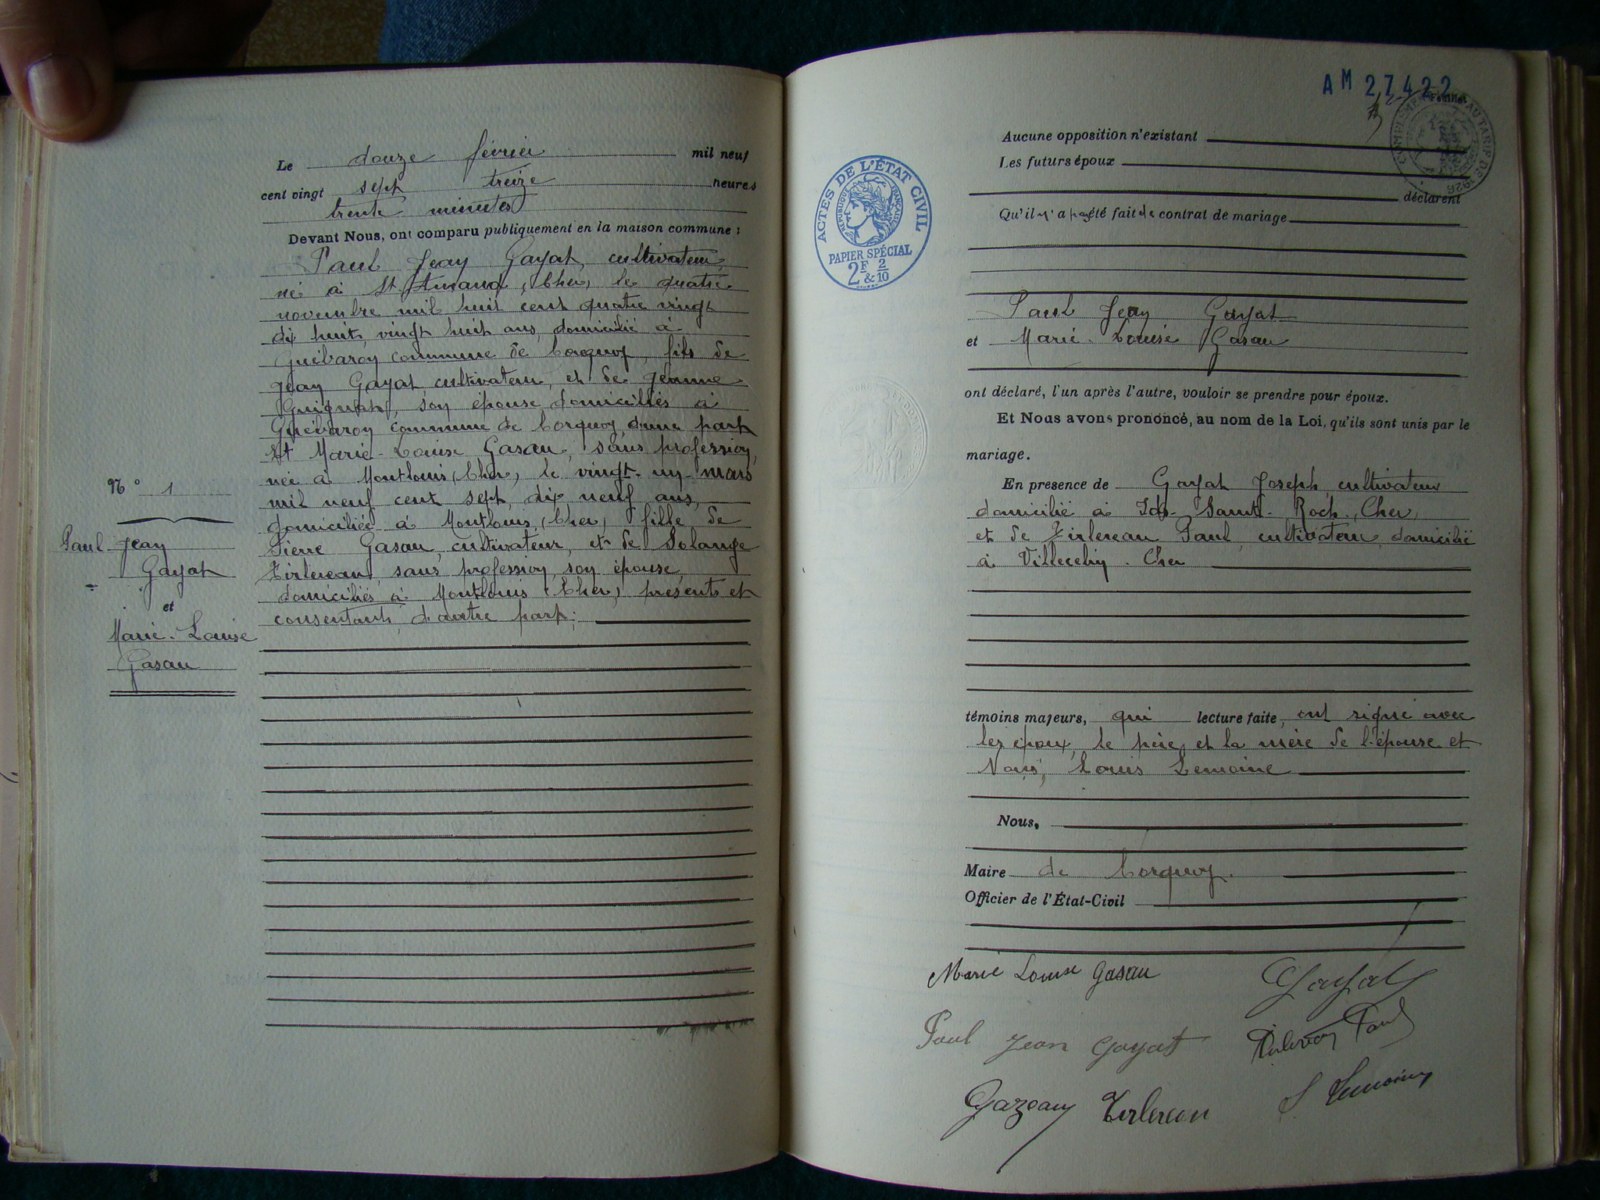 Le douze février mil neuf
cent vingt sept treize heures
trente minutes
Devant Nous, ont comparu publiquement en la maison commune :
Paul Jean Gayat, cultivateur,
né à St Amand, (Cher), le quatre
novembre mil huit cent quatre vingt
dix huit, vingt huit ans, domicilié à
commune de Corquoy, fils de
Jean Gayat, cultivateur, et de Jeanne
son épouse domiciliés à
commune de Corquoy, d'une part
Et Marie-Louise Gasau, sans profession,
née à Montlouis, (Cher), le vingt-un mars
mil neuf cent sept, dix neuf ans,
domiciliée à Montlouis, (Cher), fille de
Pierre Gasau, cultivateur, et de Solange
Tirlereau, sans profession, son épouse,
domiciliés à Montlouis (Cher), présents et
consentants, d'autre part.
N° 1
Paul Jean
Gayat
et
Marie-Louise
Gasau
AM 27422
ACTES DE L'ÉTAT CIVIL
RÉPUBLIQUE FRANÇAISE
PAPIER SPÉCIAL
2F & 2/10
Aucune opposition n'existant
Les futurs époux
déclarent
Qu'il n'a pas été fait de contrat de mariage
Paul Jean Gayat
et Marie-Louise Gasau
ont déclaré, l'un après l'autre, vouloir se prendre pour époux.
Et Nous avons prononcé, au nom de la Loi, qu'ils sont unis par le
mariage.
En présence de Gayat Joseph, cultivateur
domicilié à Ids-Saint-Roch, Cher,
et de Tirlereau Paul, cultivateur, domicilié
à Villecelin. Cher
témoins majeurs, qui lecture faite, ont signé avec
les époux, le père et la mère de l'épouse et
Nous, Louis Lemoine
Nous,
Maire de Corquoy.
Officier de l'État-Civil
Marie Louise Gasau
Gayat
Paul Jean Gayat
Tirlereau Paul
Gazeau Tirlereau
L Lemoine